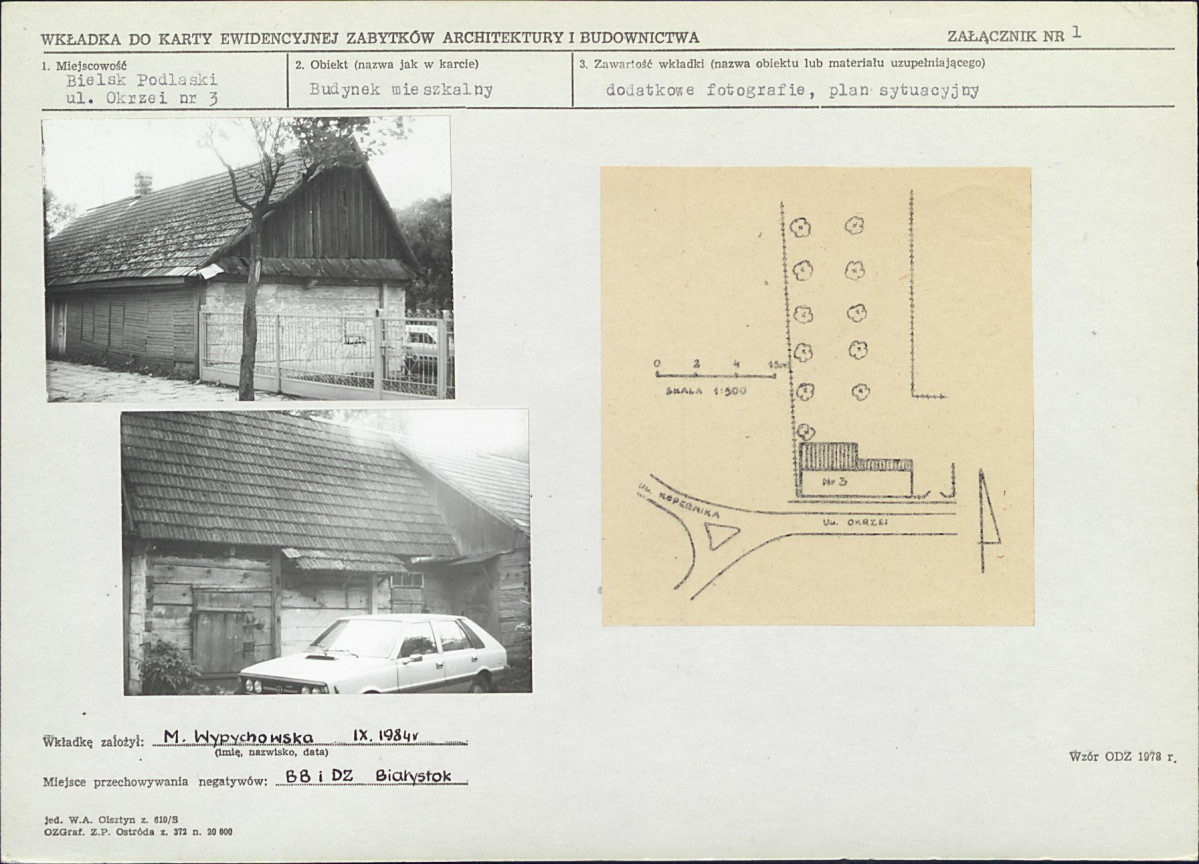 WKŁADKA DO KARTY EWIDENCYJNEJ ZABYTKÓW ARCHITEKTURY I BUDOWNICTWA
ZAŁĄCZNIK NR 1
1. Miejscowość
Bielsk Podlaski
ul. Okrzei nr 3
2. Obiekt (nazwa jak w karcie)
Budynek mieszkalny
3. Zawartość wkładki (nazwa obiektu lub materiału uzupełniającego)
dodatkowe fotografie, plan sytuacyjny
0 2 4
SKALA 1:500
Nr 3
UL. KOPERNIKA
UL. OKRZEI
Wkładkę założył: M. Wypychowska IX. 1984r
(imię, nazwisko, data)
Miejsce przechowywania negatywów: BB i DZ Białystok
Wzór ODZ 1978 r.
jed. W.A. Olsztyn z. 610/S
OZGraf. Z.P. Ostróda z. 372 n. 20 000